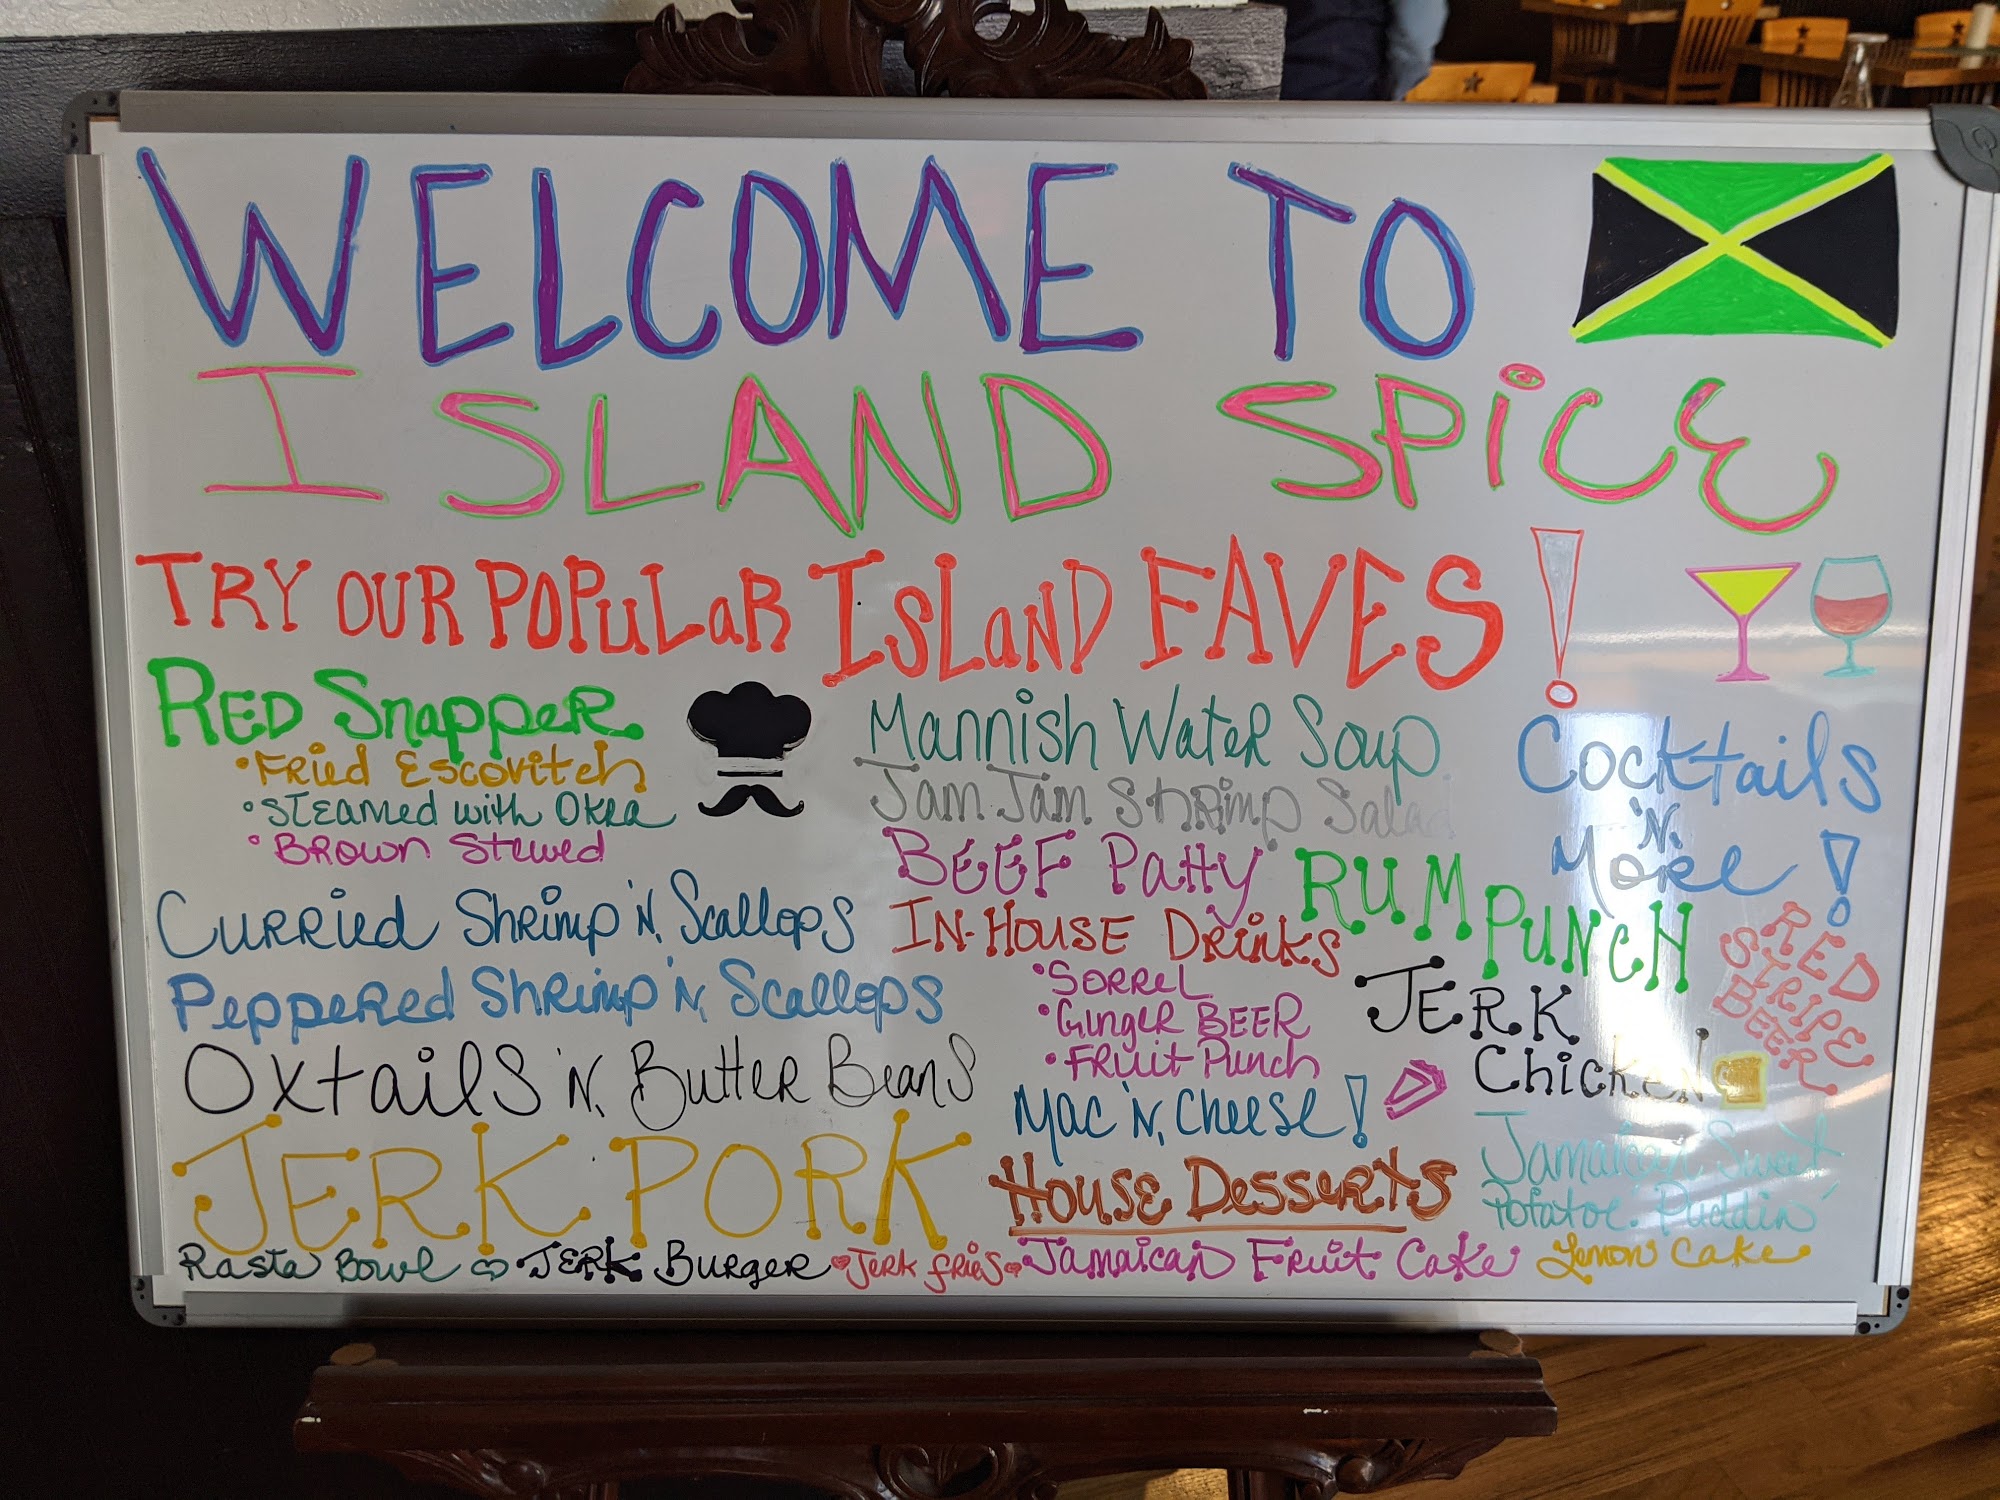 WELCOME TO
ISLAND SPiCE
TRY OUR POPuLaR ISLaND FAVES!
RED SnappeR
•FRied Escovitch
•STEAMED with OkRa
•BROWN Stewed
CURRied ShRimp 'N, Scallops
PeppeRed ShRimp 'N, Scallops
Oxtails 'N, ButteR Beans
JERK PORK
Rasta Bowl
JERK BuRgeR
JeRk fRies
Mannish WateR Soup
Jam Jam ShRimp Salad
BEEF Patty
IN-HOUSE DRinks
•SORREL
•GingeR BEER
•FRuit Punch
Mac 'N, Cheese!
House Desserts
Jamaican FRuit Cake
Lemon Cake
Cocktails
'N,
MoRe!
RUM PUNcH
RED
STRIPE
BEER
JERK
ChicKEN
Jamaican Sweet
Potatoe Puddin'